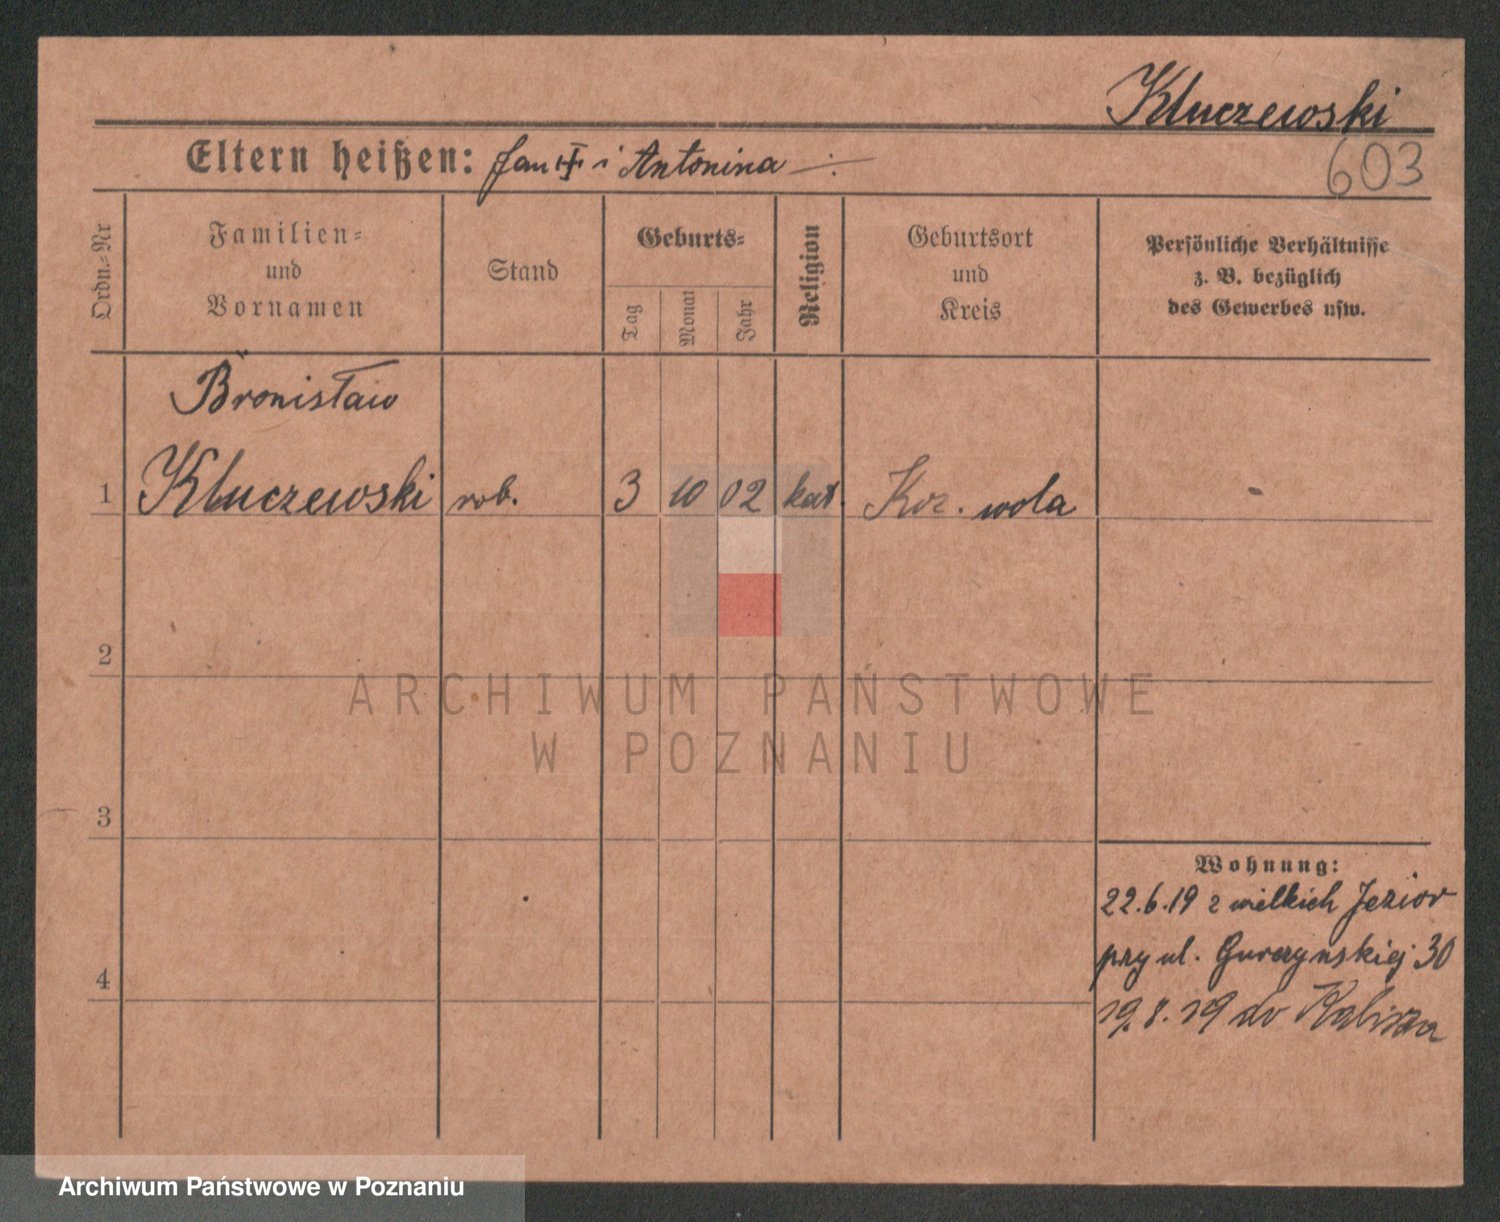 Kluczewski
603
Eltern heißen: Jan i Antonina
Ordn.-Nr
Familien-
und
Vornamen
Stand
Geburts-
Tag
Monat
Jahr
Religion
Geburtsort
und
Kreis
Persönliche Verhältnisse
z. B. bezüglich
des Gewerbes usw.
Bronisław
1 Kluczewski rob. 3 10 02 kat. Koz. wola
2
ARCHIWUM PAŃSTWOWE
W POZNANIU
3
Wohnung:
22.6.19 z wielkich Jezior
przy ul. Gurczynskiej 30
4
19.8.19 do Kalisza
Archiwum Państwowe w Poznaniu